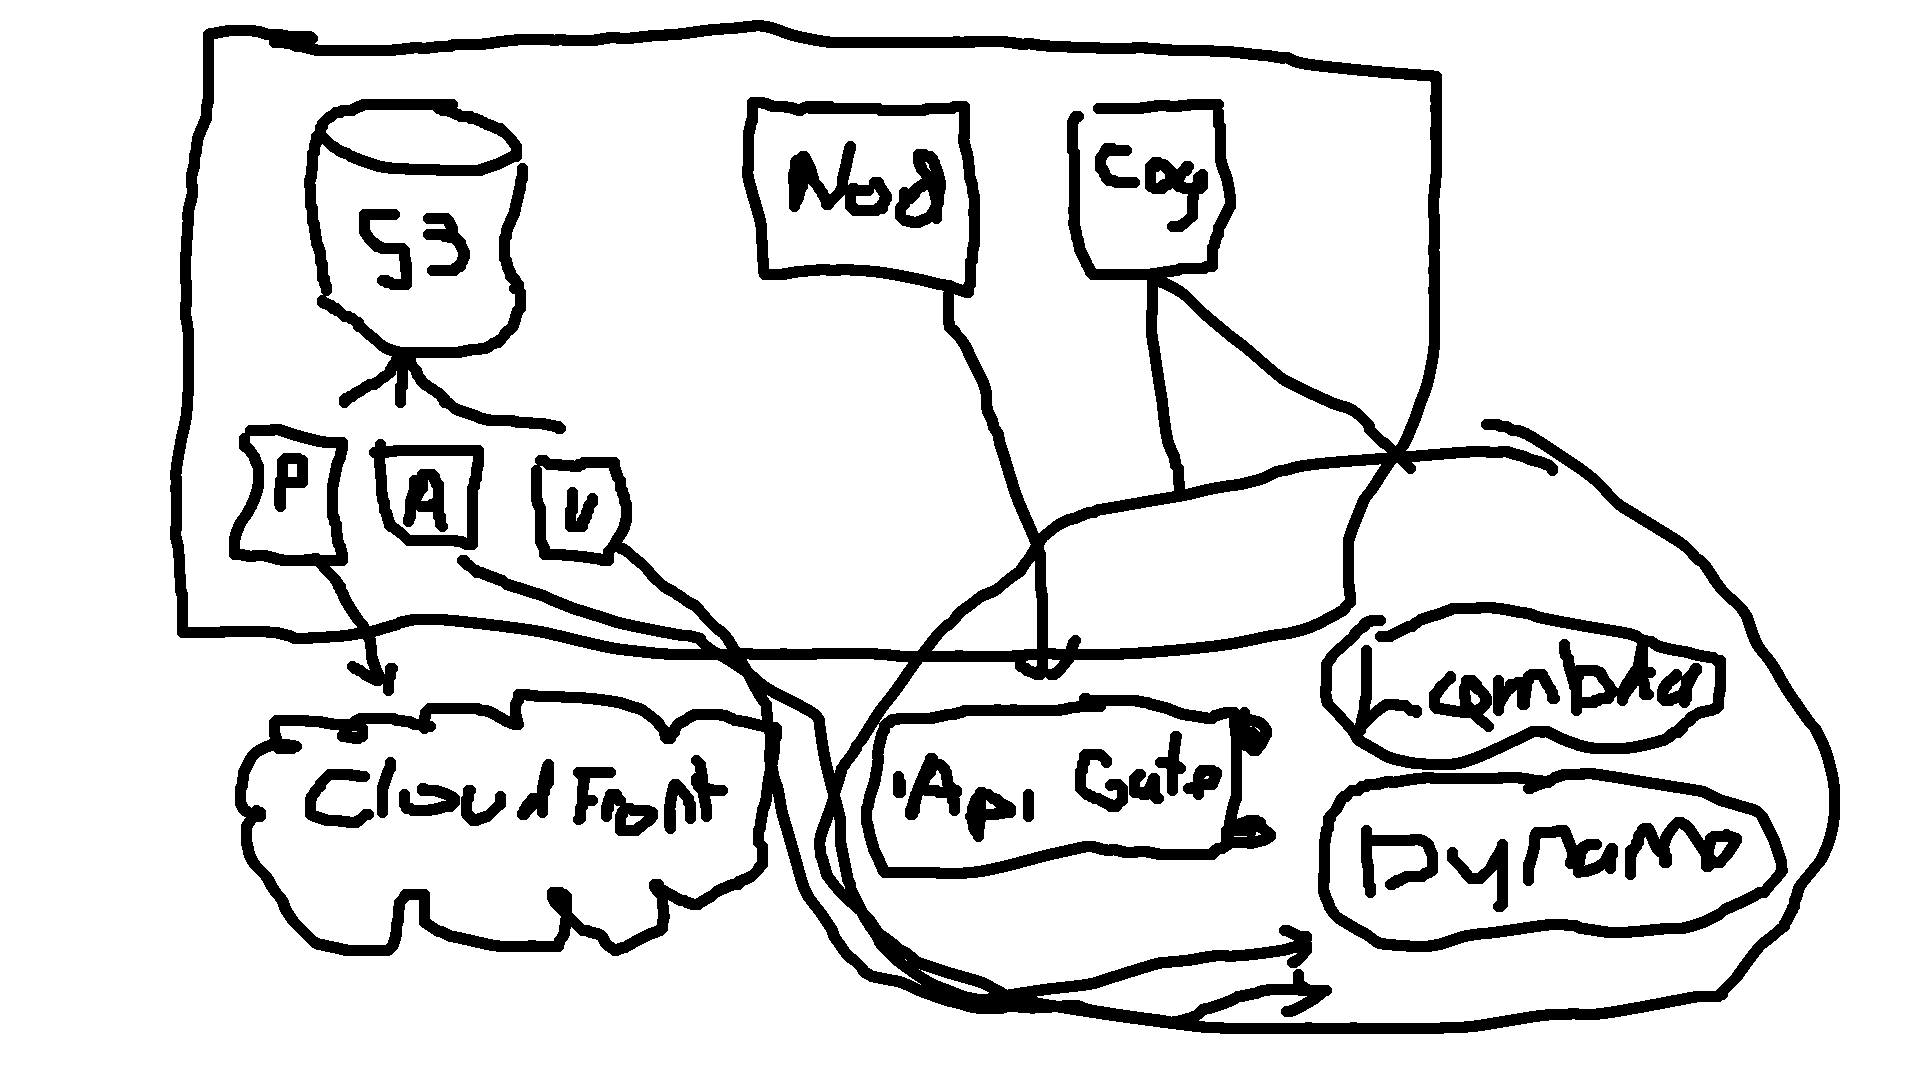 S3
Nod
Cog
P
A
V
Cloud Front
Api Gate
Lambda
Dynamo